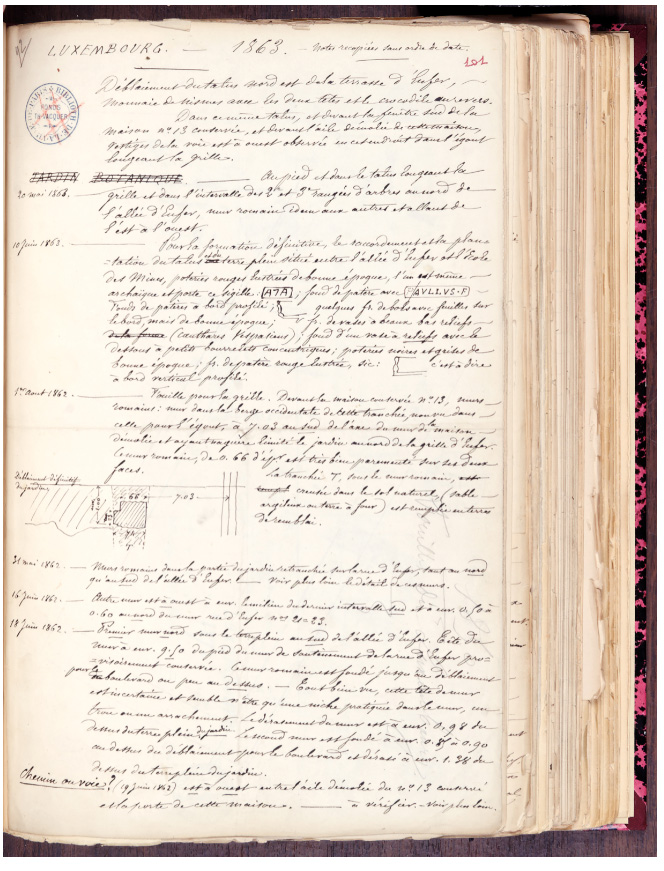 LUXEMBOURG. — 1863. — Notes recopiées sans ordre de date.
101
Déblaiement du talus nord est de la terrasse d'Enfer, —
monnaie de nismes avec les deux têtes et le crocodile au revers.
Dans ce même talus, et devant la fenêtre sud de la
maison nº 13 conservée, et devant l'aile démolie de cette maison,
vestiges de la voie est à ouest observée en cet endroit dans l'égout
longeant la grille.
JARDIN BOTANIQUE — Au pied et dans le talus longeant la
20 mai 1863. — grille et dans l'intervalle des 2e et 3e rangées d'arbres au nord de
l'allée d'Enfer, mur romain idem aux autres et allant de
l'est à l'ouest.
10 Juin 1863. — Pour la formation définitive, le raccordement et la plan-
=tation du talus et du terre plein situé entre l'allée d'Enfer et l'École
des Mines, poteries rouges lustrées de bonne époque, l'un est même
archaïque et porte ce sigille ATA; fond de patère avec PAVLLVS·F
fonds de patères à bord profilé; quelques fr. de bols avec feuilles sur
le bord, mais de bonne époque; fr. de vases à beaux bas reliefs
de la forme (canthares Vespasiens); fond d'un vase à reliefs avec le
dessous à petits bourrelets concentriques; poteries noires et grises de
bonne époque; fr. de patère rouge lustrée, sic: c'est à dire
à bord vertical profilé.
1er Aout 1862. — Fouille pour la grille. Devant la maison conservée nº 13, murs
romains: mur dans la berge occidentale de cette tranchée, non vu dans
celle pour l'égout, à 7.03 au sud de l'axe du mur de la maison
démolie et ayant naguère limité le jardin au nord de la grille d'Enfer.
Ce mur romain, de 0.66 d'épr est très bien parementé sur ses deux
faces.
la tranchée T, sous le mur romain, est
creusée dans le sol naturel, (sable
argileux ou terre à four) est remplie en terres
de remblai.
Déblaiement définitif
du jardin
.66
7.03
31 mai 1862. — Murs romains dans la partie du jardin retranchée sur la rue d'Enfer, tant au nord
qu'au sud de l'allée d'Enfer. — Voir plus loin le détail de ces murs.
16 Juin 1862. — Autre mur est à ouest à eur. le milieu du dernier intervalle sud et à eur. 0.50 à
0.60 au nord du mur rue d'Enfer nos 21=23.
18 Juin 1862. — Premier mur nord sous le terre plein au sud de l'allée d'Enfer. Tête du
mur à eur. 9.50 du pied du mur de soutènement de la rue d'Enfer pro-
=visoirement conservée. Ce mur romain est fondé jusqu'au déblaiement
pour le boulevard ou peu au dessus. — Tout bien vu, cette tête de mur
est incertaine et semble n'être qu'une niche pratiquée dans le mur, un
trou ou un arrachement. Le dérasement du mur est à eur. 0.98 du
dessus du terre plein du jardin. Le second mur est fondé à eur. 0.85 à 0.90
au dessus du déblaiement pour le boulevard et dérasé à eur. 1.38 du
dessus du terre plein du jardin.
Chemin ou voie? (19 Juin 1862) est à ouest entre l'aile démolie du nº 13 conservé
et la porte de cette maison. — à vérifier. — Voir plus loin.